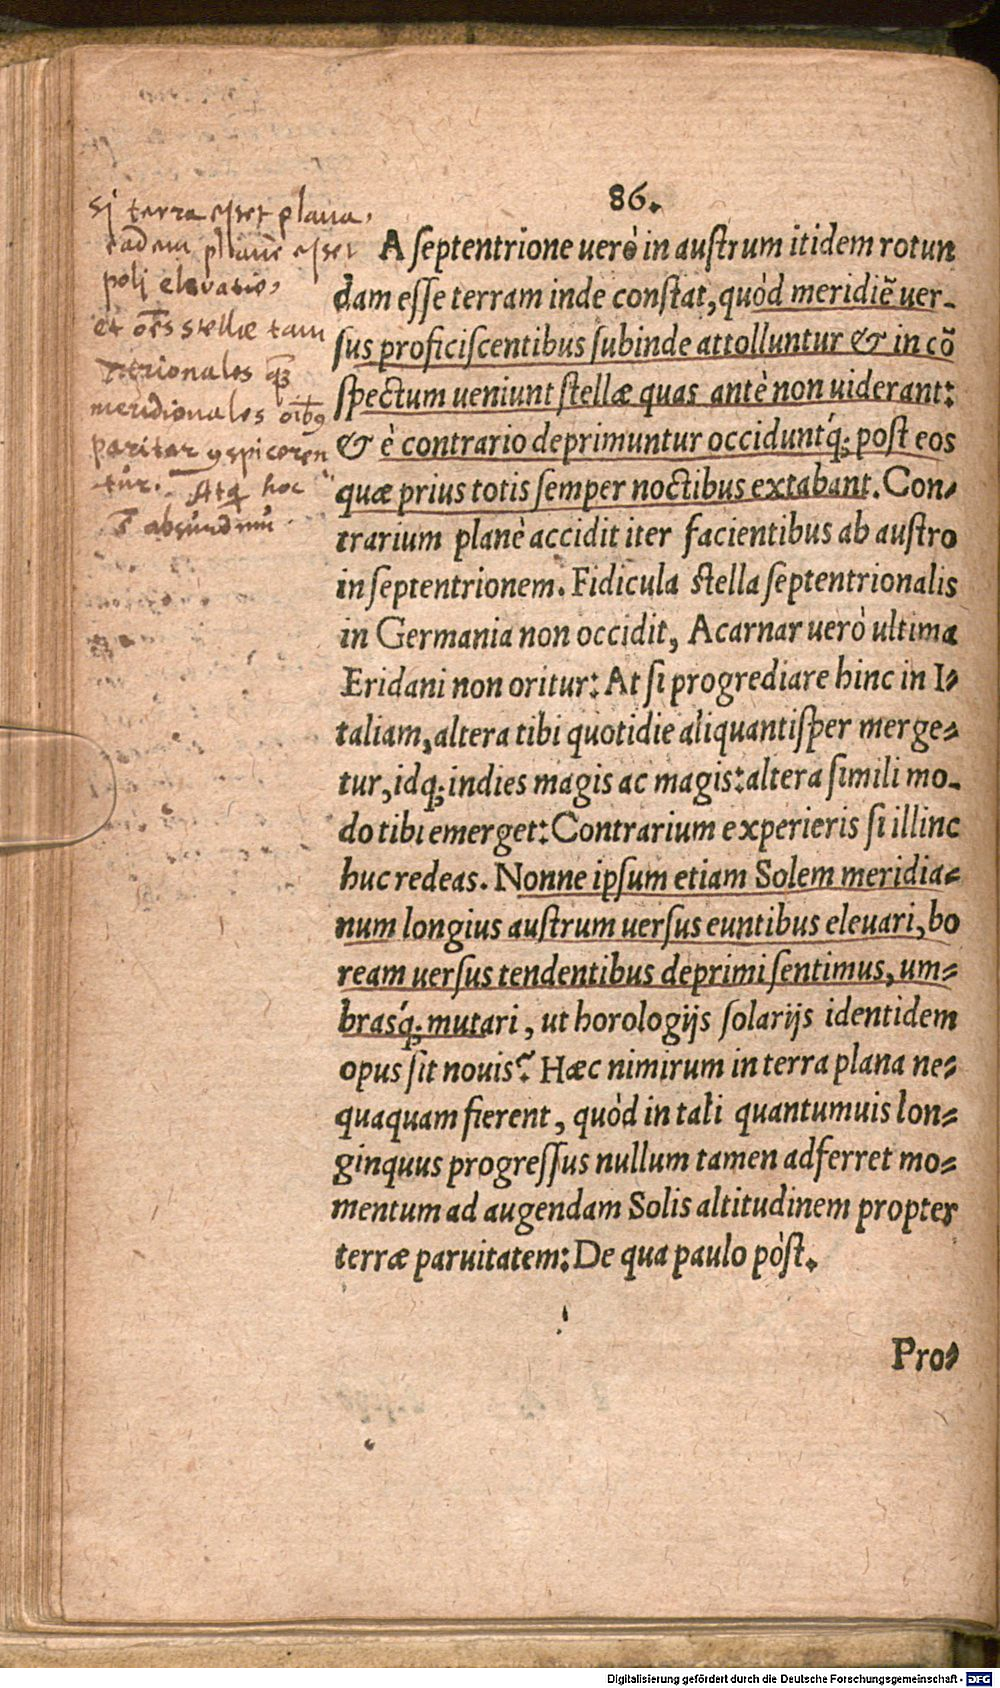 86.
Si terra esset plana,
eadem plane esset
poli elevatio,
et oēs stellæ tam
meridionales
pariter 9spiceren
tur. Atq hoc
ē absurdum
A septentrione uerò in austrum itidem rotun
dam esse terram inde constat, quòd meridiē uer-
sus proficiscentibus subinde attolluntur & in cō
spectum ueniunt stellæ quas antè non uiderant:
& è contrario deprimuntur occiduntq́; post eos
quæ prius totis semper noctibus extabant. Con-
trarium planè accidit iter facientibus ab austro
in septentrionem. Fidicula stella septentrionalis
in Germania non occidit, Acarnar uerò ultima
Eridani non oritur: At si progrediare hinc in I-
taliam, altera tibi quotidie aliquantisper merge-
tur, idq; indies magis ac magis: altera simili mo-
do tibi emerget: Contrarium experieris si illinc
huc redeas. Nonne ipsum etiam Solem meridia-
num longius austrum uersus euntibus eleuari, bo
ream uersus tendentibus deprimi sentimus, um-
brasq́; mutari, ut horologijs solarijs identidem
opus sit nouis? Hæc nimirum in terra plana ne-
quaquam fierent, quòd in tali quantumuis lon-
ginquus progressus nullum tamen adferret mo-
mentum ad augendam Solis altitudinem propter
terræ paruitatem: De qua paulo pòst.
Pro-
Digitalisierung gefördert durch die Deutsche Forschungsgemeinschaft - DFG